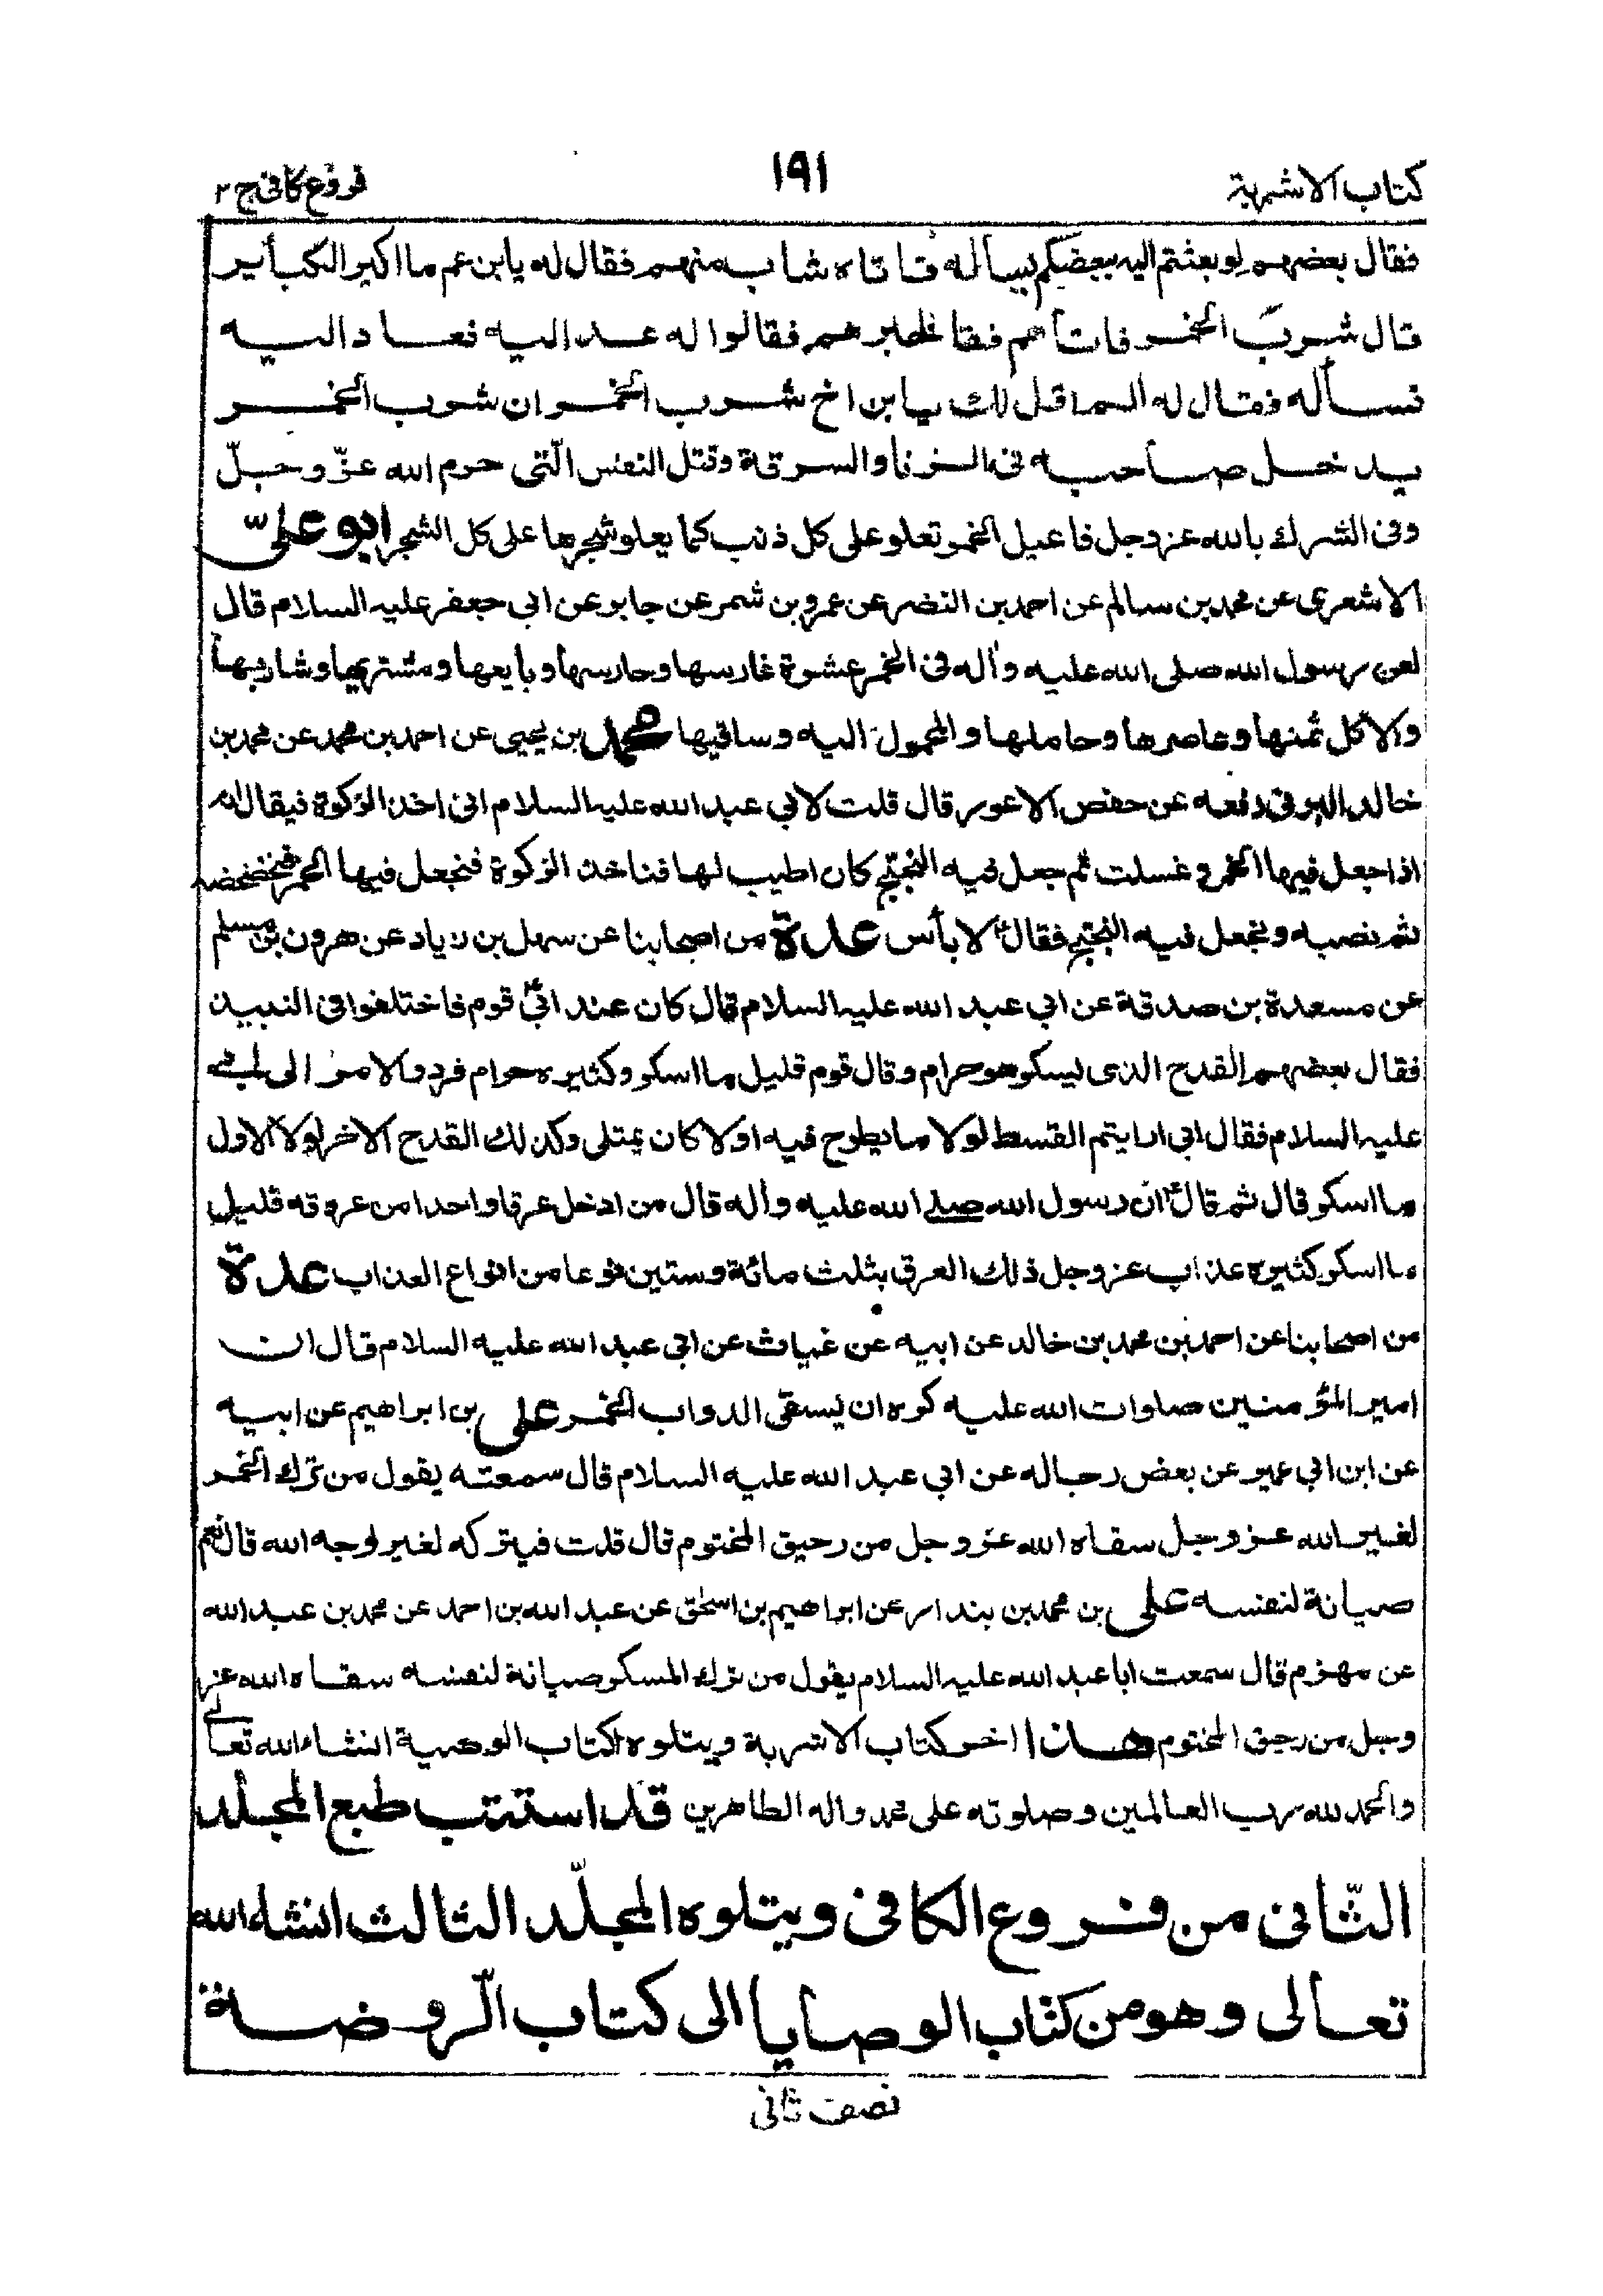 كتاب الاشربة
١٩١
فروع كافي ج ٢
فقال بعضهم لو بعثتم اليه ببعضكم يسأله فاتاه شاب منهم فقال له يا بن عم ما اكبر الكبأير
قال شرب الخمر فاتأهم فقالوا له عد اليه فعاد اليه
نسأله فقال له الم اقل لك يا بن اخ شرب الخمر ان شرب الخمر
يدخل صاحبه في الزنا والسرقة وقتل النفس الّتي حرم الله عزّ وجلّ
وفي الشرك بالله عز وجل فاعيل الخمر تعلو على كل ذنب كما يعلو شجرها على كل الشجر ابو علىّ
الاشعرى عن محمد بن سالم عن احمد بن النضر عن عمرو بن شمر عن جابر عن ابي جعفر عليه السلام قال
لعن رسول الله صلى الله عليه وأله في الخمر عشرة غارسها وحارسها وبأيعها ومشتريها وشاربها
والأكل ثمنها وعاصرها وحاملها والمحمول اليه وساقيها محمد بن يحيى عن احمد بن محمد عن محمد بن
خالد البرقي رفعه عن حفص الاعور قال قلت لابي عبد الله عليه السلام اني اخذ الزكوة فيقال انه
اذا جعل فيها الخمر وغسلت ثم جعل فيه البختج كان اطيب لها فناخذ الزكوة فنجعل فيها الخمر فنخضخضه
ثم نصبه ونجعل فيه البختج فقال لا بأس عدة من اصحابنا عن سهل بن زياد عن هرون بن مسلم
عن مسعدة بن صدقة عن ابي عبد الله عليه السلام قال كان عند ابي قوم فاختلفوا في النبيذ
فقال بعضهم القدح الذى يسكر هو حرام وقال قوم قليل ما اسكر وكثيره حرام فردوا الامر الى ابي
عليه السلام فقال ابي ارايتم القسط لولا ما يطرح فيه اولا كان يمتلى وكذلك القدح الاخر لولا الاول
ما اسكر قال ثم قال ان رسول الله صلے الله عليه وأله قال من ادخل عرقا واحدا من عروقه قليل
ما اسكر كثيره عذاب عز وجل ذلك العرق بثلث مائة وستين نوعا من انواع العذاب عدة
من اصحابنا عن احمد بن محمد بن خالد عن ابيه عن غياث عن ابي عبد الله عليه السلام قال ان
امير المؤمنين صلوات الله عليه كره ان يسقى الدواب الخمر على بن ابراهيم عن ابيه
عن ابن ابي عمير عن بعض رجاله عن ابي عبد الله عليه السلام قال سمعته يقول من ترك الخمر
لغير الله عز وجل سقاه الله عز وجل من رحيق المختوم قال قلت فيتركه لغير لوجه الله قال نعم
صيانة لنفسه على بن محمد بن بندار عن ابراهيم بن اسحٰق عن عبد الله بن احمد عن محمد بن عبد الله
عن مهزم قال سمعت ابا عبد الله عليه السلام يقول من ترك المسكر صيانة لنفسه سقاه الله عز
وجل من رحيق المختوم هذا اخر كتاب الاشربة ويتلوه كتاب الوصية انشاء الله تعالے
والحمد لله رب العالمين وصلوته على محمد واله الطاهرين قد استتب طبع المجلد
الثّاني من فروع الكافي ويتلوه المجلّد الثالث انشاء الله
تعالى وهو من كتاب الوصايا الى كتاب الرّوضة
نصف ثاني